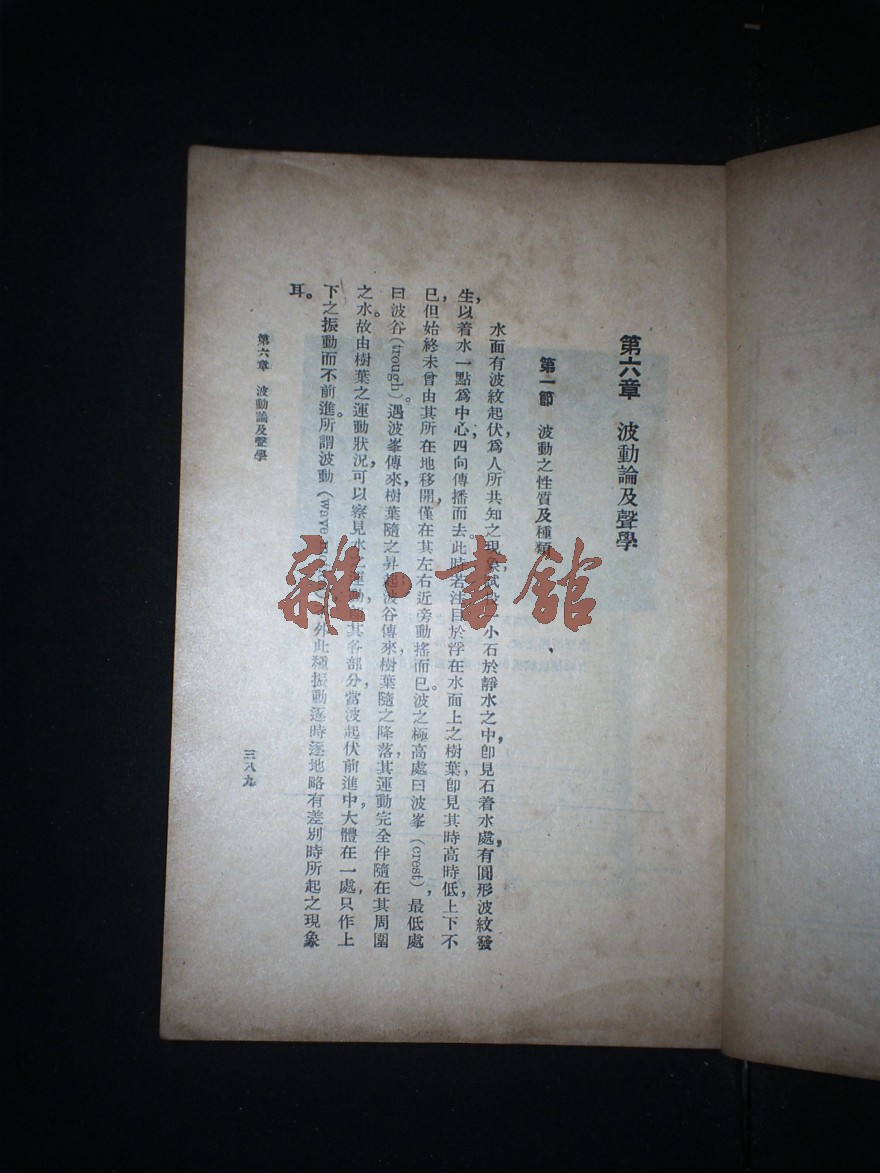 第六章　波動論及聲學
第一節　波動之性質及種類
水面有波紋起伏，爲人所共知之現象，試投一小石於靜水之中，卽見石着水處，有圓形波紋發
生，以着水一點爲中心，四向傳播而去。此時若注目於浮在水面上之樹葉，卽見其時高時低，上下不
已，但始終未曾由其所在地移開，僅在其左右近旁動搖而已。波之極高處曰波峯（crest），最低處
曰波谷（trough）。遇波峯傳來，樹葉隨之昇起，波谷傳來，樹葉隨之降落，其運動完全伴隨在其周圍
之水。故由樹葉之運動狀況，可以察見水之運動，卽其各部分當波起伏前進中，大體在一處，只作上
下之振動而不前進。所謂波動（wave 外此種振動逐時逐地略有差別時所起之現象
耳。
第六章　波動論及聲學
三八九
雜·書館